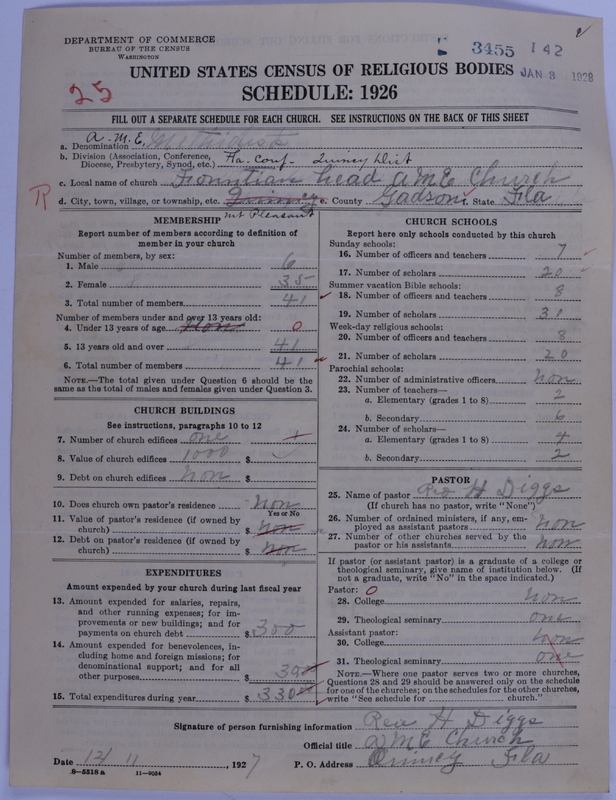 DEPARTMENT OF COMMERCE
BUREAU OF THE CENSUS
WASHINGTON
3455 142
JAN 3 1928
UNITED STATES CENSUS OF RELIGIOUS BODIES
SCHEDULE: 1926
25
FILL OUT A SEPARATE SCHEDULE FOR EACH CHURCH. SEE INSTRUCTIONS ON THE BACK OF THIS SHEET
a. Denomination A.M.E. Methodist
b. Division (Association, Conference, Diocese, Presbytery, Synod, etc.) Fla Conf- Quincy Dist
c. Local name of church Founttian head AME Church
R d. City, town, village, or township, etc. Quincy e. County Gadson f. State Fla
Mt Pleasant
MEMBERSHIP
Report number of members according to definition of
member in your church
Number of members, by sex:
1. Male 6
2. Female 35
3. Total number of members 41
Number of members under and over 13 years old:
4. Under 13 years of age non 0
5. 13 years old and over 41
6. Total number of members 41
NOTE.—The total given under Question 6 should be the
same as the total of males and females given under Question 3.
CHURCH BUILDINGS
See instructions, paragraphs 10 to 12
7. Number of church edifices one 1
8. Value of church edifices 1000 $
9. Debt on church edifices non $
10. Does church own pastor's residence non
Yes or No
11. Value of pastor's residence (if owned by
church) $ non
12. Debt on pastor's residence (if owned by
church) $ non
EXPENDITURES
Amount expended by your church during last fiscal year
13. Amount expended for salaries, repairs,
and other running expenses; for im-
provements or new buildings; and for
payments on church debt $ 300
14. Amount expended for benevolences, in-
cluding home and foreign missions; for
denominational support; and for all
other purposes $ 30
15. Total expenditures during year $ 330
CHURCH SCHOOLS
Report here only schools conducted by this church
Sunday schools:
16. Number of officers and teachers 7
17. Number of scholars 20
Summer vacation Bible schools:
18. Number of officers and teachers 8
19. Number of scholars 31
Week-day religious schools:
20. Number of officers and teachers 8
21. Number of scholars 20
Parochial schools:
22. Number of administrative officers non
23. Number of teachers—
a. Elementary (grades 1 to 8) 2
b. Secondary 6
24. Number of scholars—
a. Elementary (grades 1 to 8) 4
b. Secondary 2
PASTOR
25. Name of pastor Rev H Diggs
(If church has no pastor, write "None")
26. Number of ordained ministers, if any, em-
ployed as assistant pastors non
27. Number of other churches served by the
pastor or his assistants non
If pastor (or assistant pastor) is a graduate of a college or
theological seminary, give name of institution below. (If
not a graduate, write "No" in the space indicated.)
Pastor: 0
28. College non
29. Theological seminary one
Assistant pastor:
30. College non
31. Theological seminary one
NOTE.—Where one pastor serves two or more churches,
Questions 28 and 29 should be answered only on the schedule
for one of the churches; on the schedules for the other churches,
write "See schedule for ________ church."
Signature of person furnishing information Rev H Diggs
Official title AME Church
Date 12/11, 1927 P. O. Address Quincy Fla
8—5518 a 11—9054